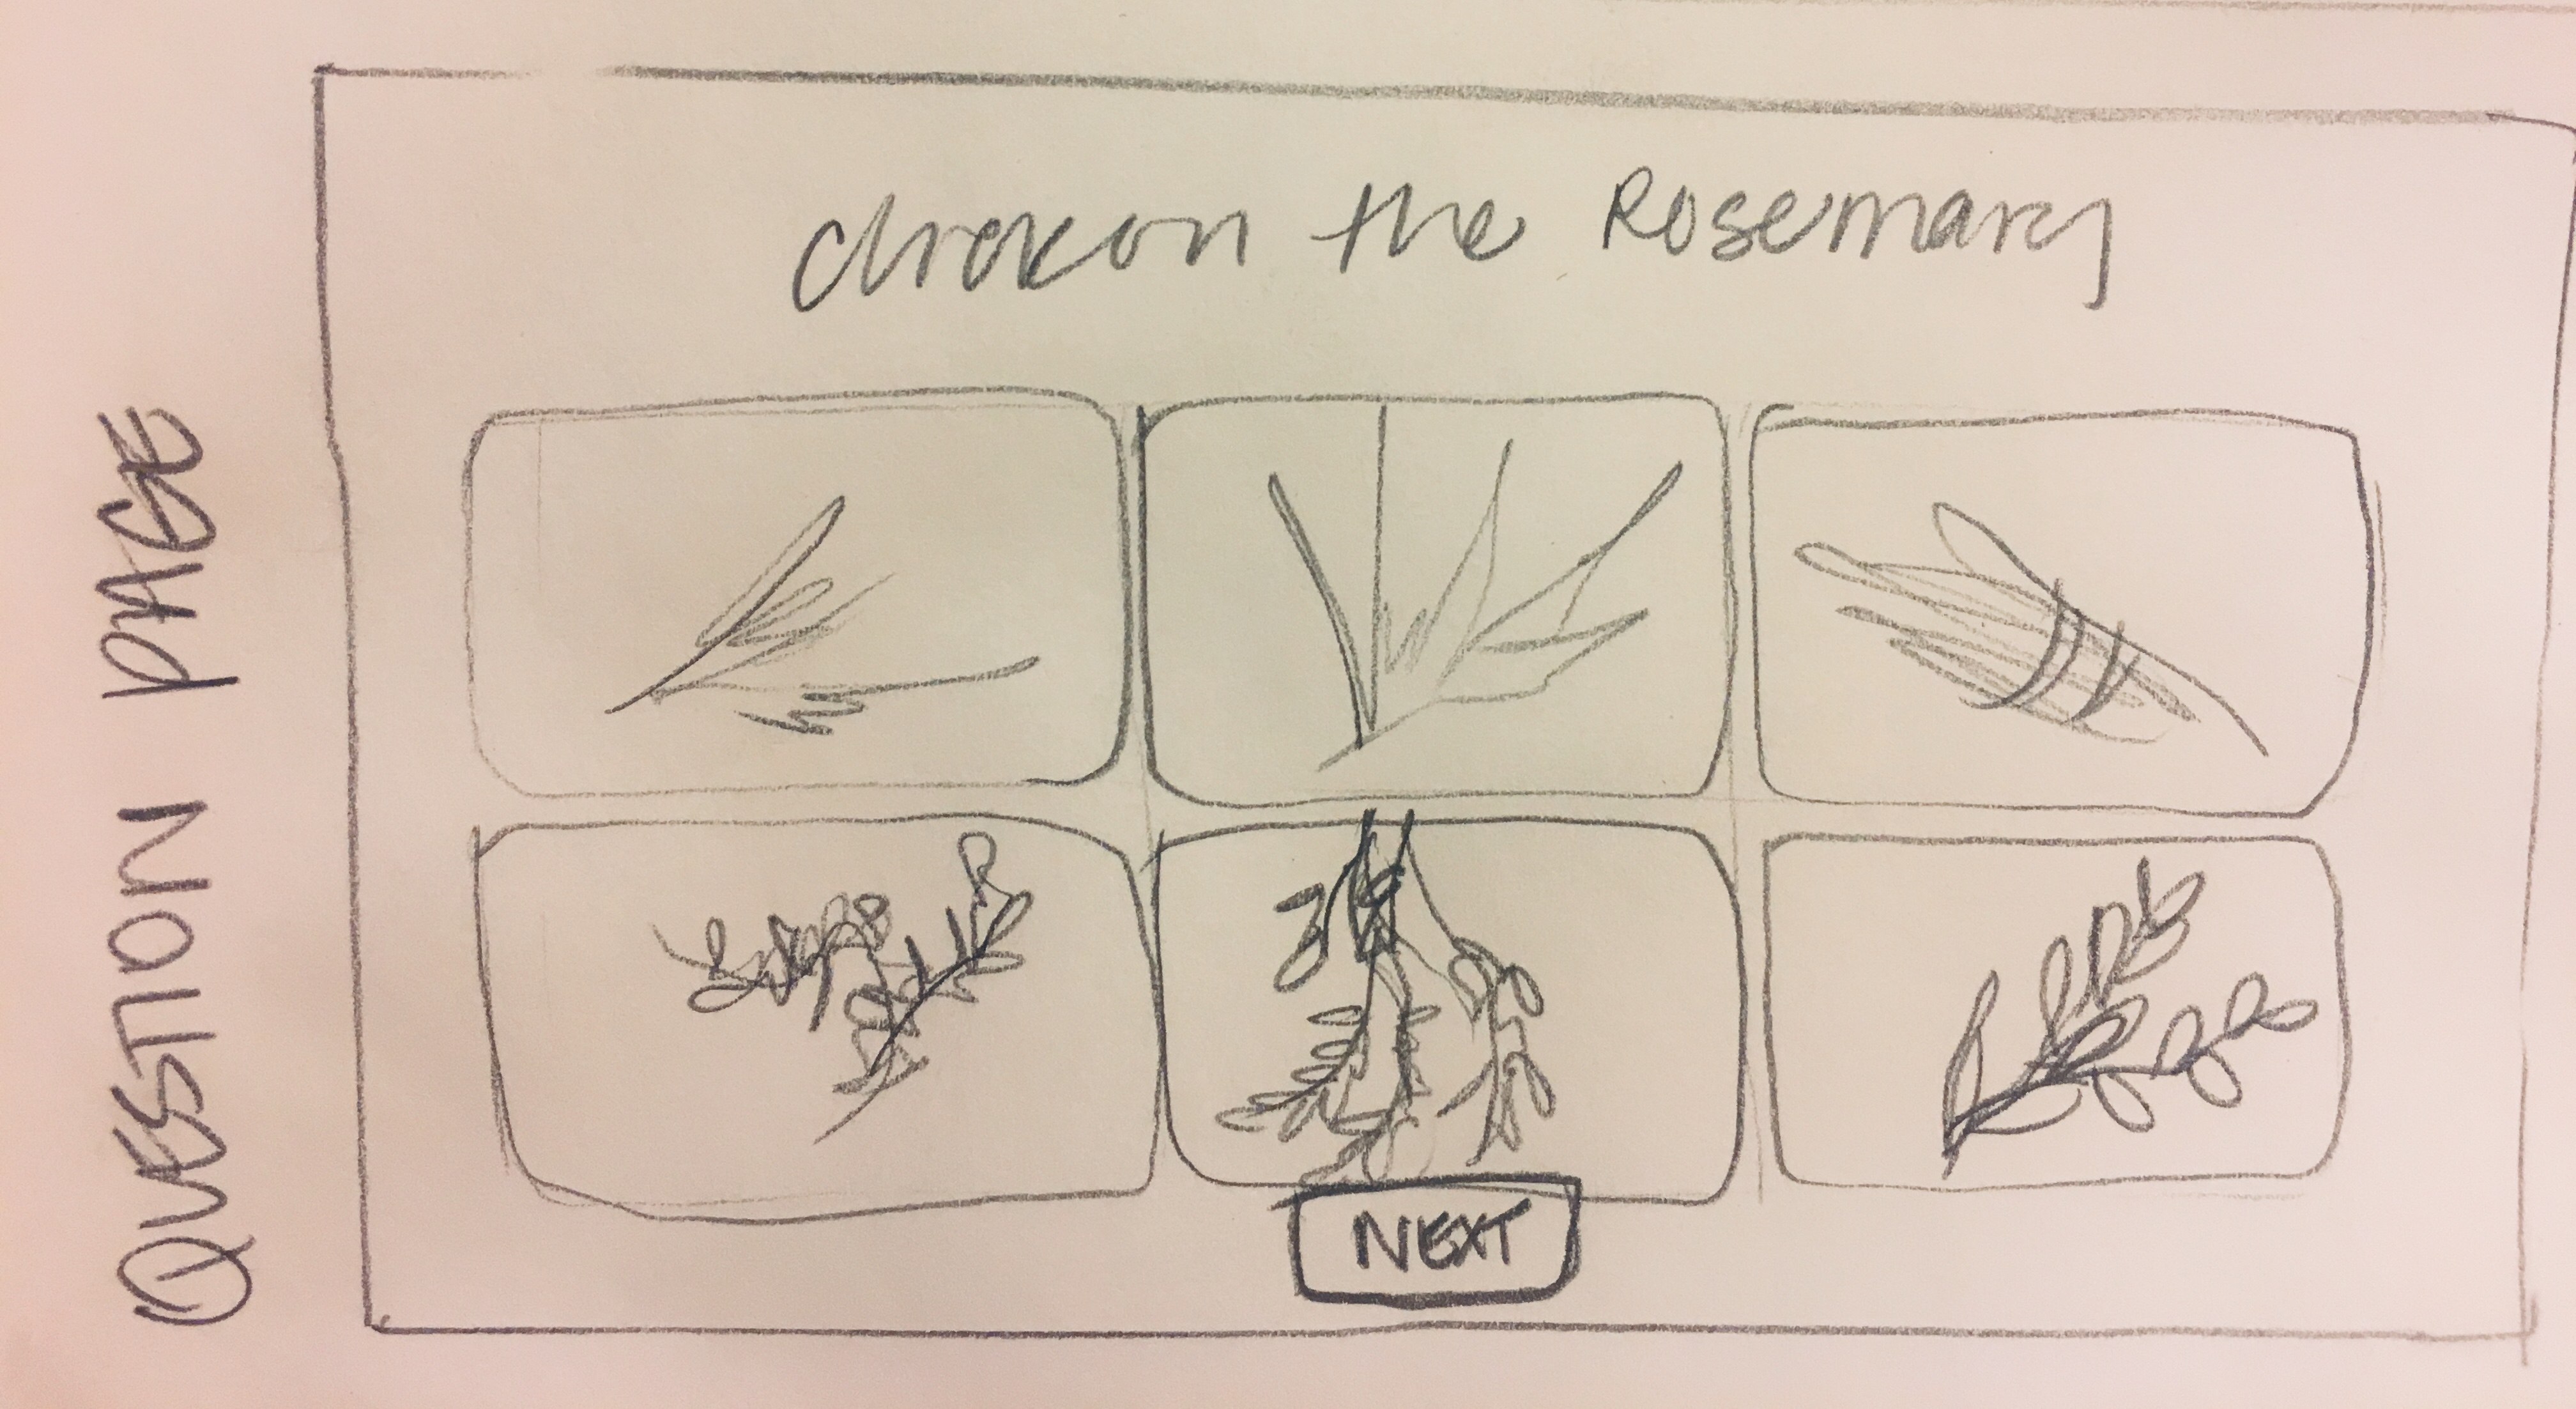 QUESTION PAGE
click on the Rosemary
NEXT